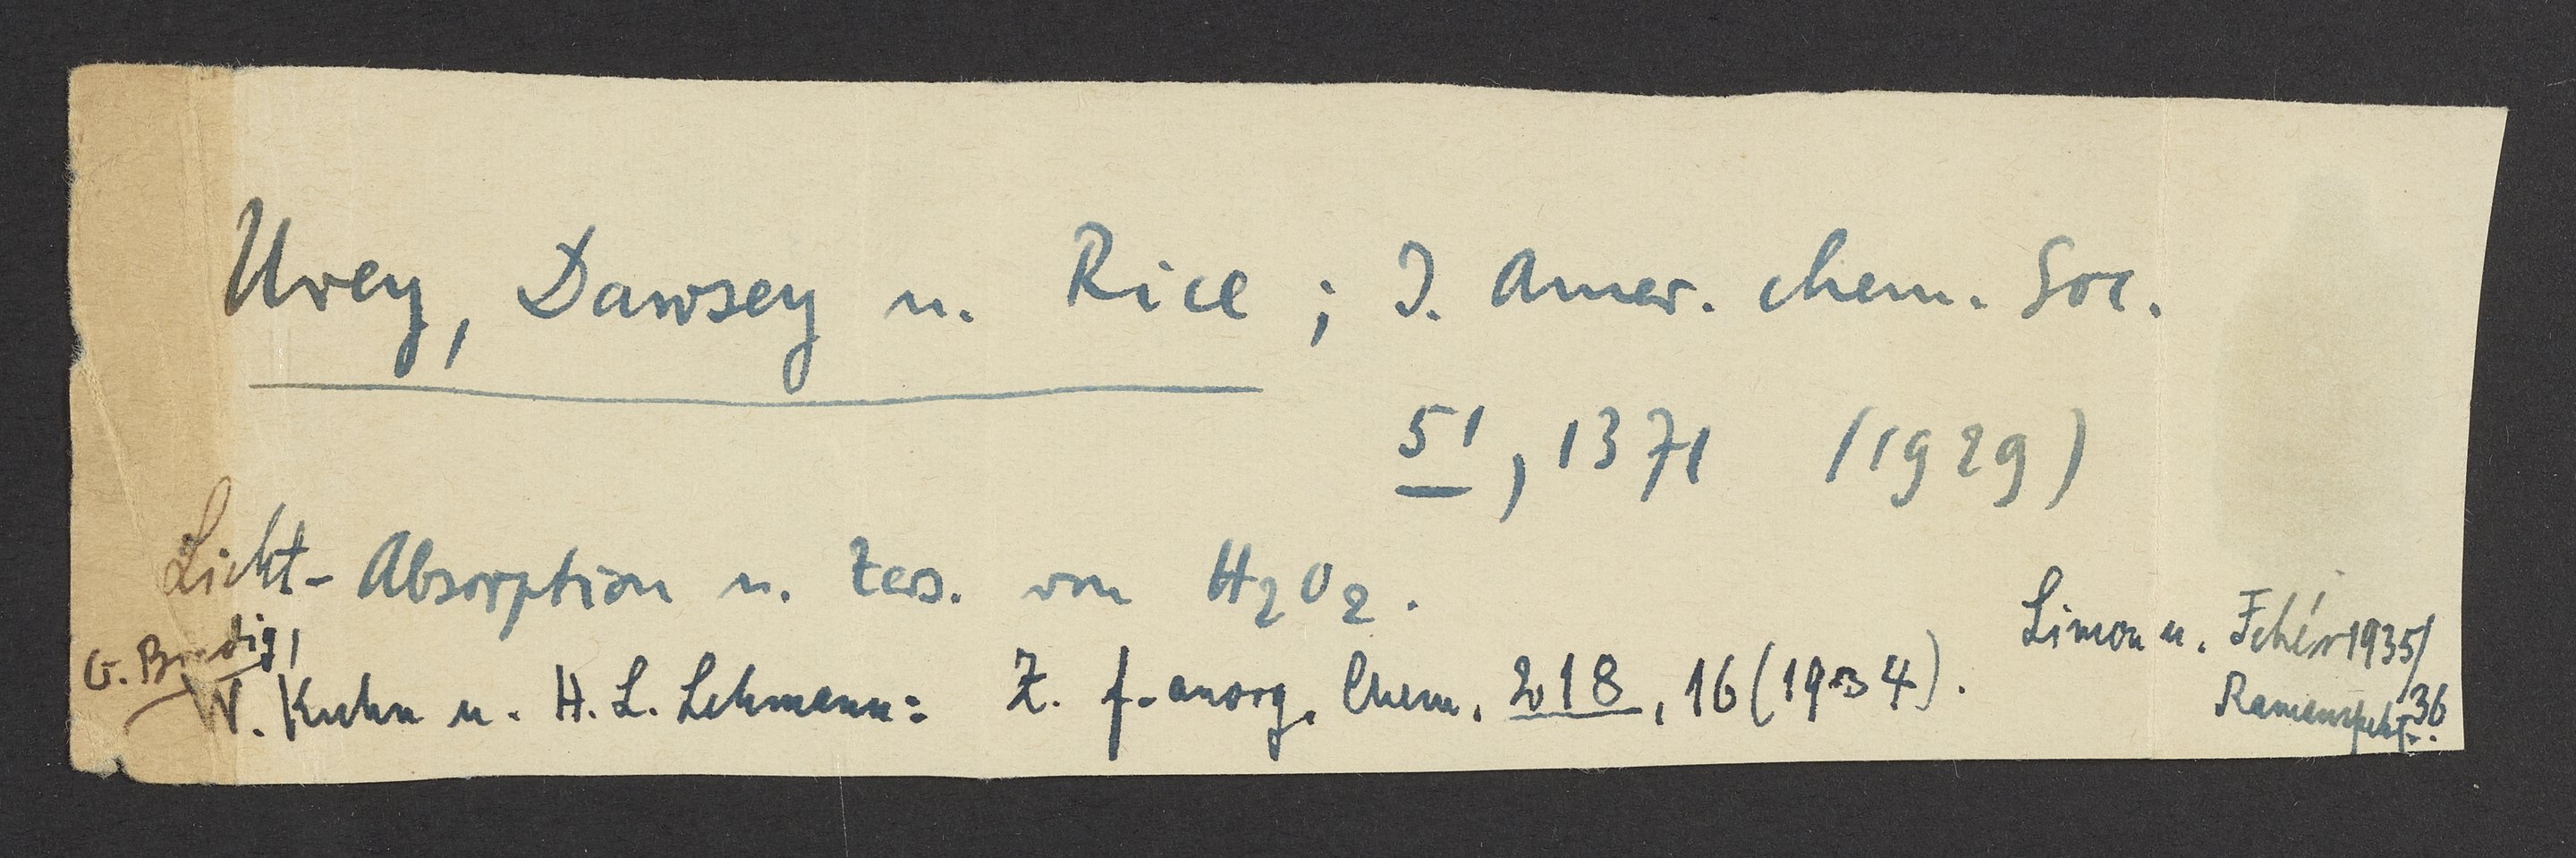 Urey, Dawsey u. Rice ; J. Amer. chem. Soc.
51, 1371 (1929)
Licht-Absorption u. Zers. von H2O2.
G. Bredig,
W. Kuhn u. H. L. Lehmann: Z. f. anorg. Chem. 218, 16 (1934).
Simon u. Fehér 1935/
36
Ramanspekt.